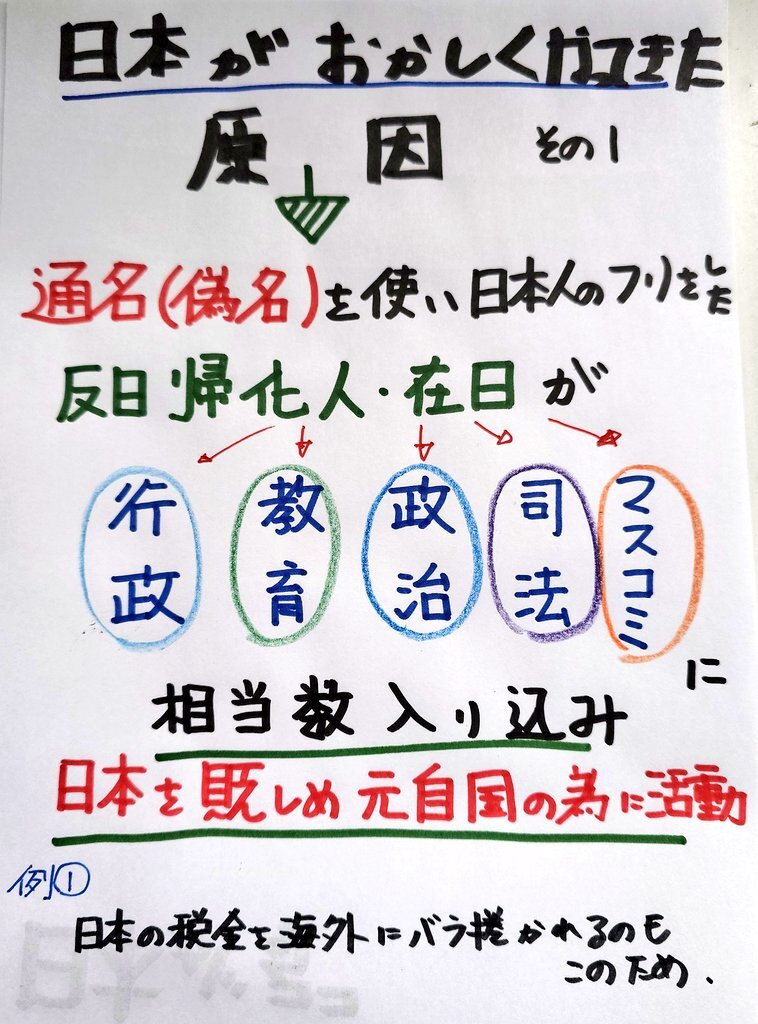 日本がおかしくなってきた
原因 その1
通名(偽名)を使い日本人のフリをした
反日帰化人・在日が
行政 教育 政治 司法 マスコミ
に
相当数入り込み
日本を貶しめ元自国の為に活動
例①
日本の税金を海外にバラ撒かれるのも
このため.